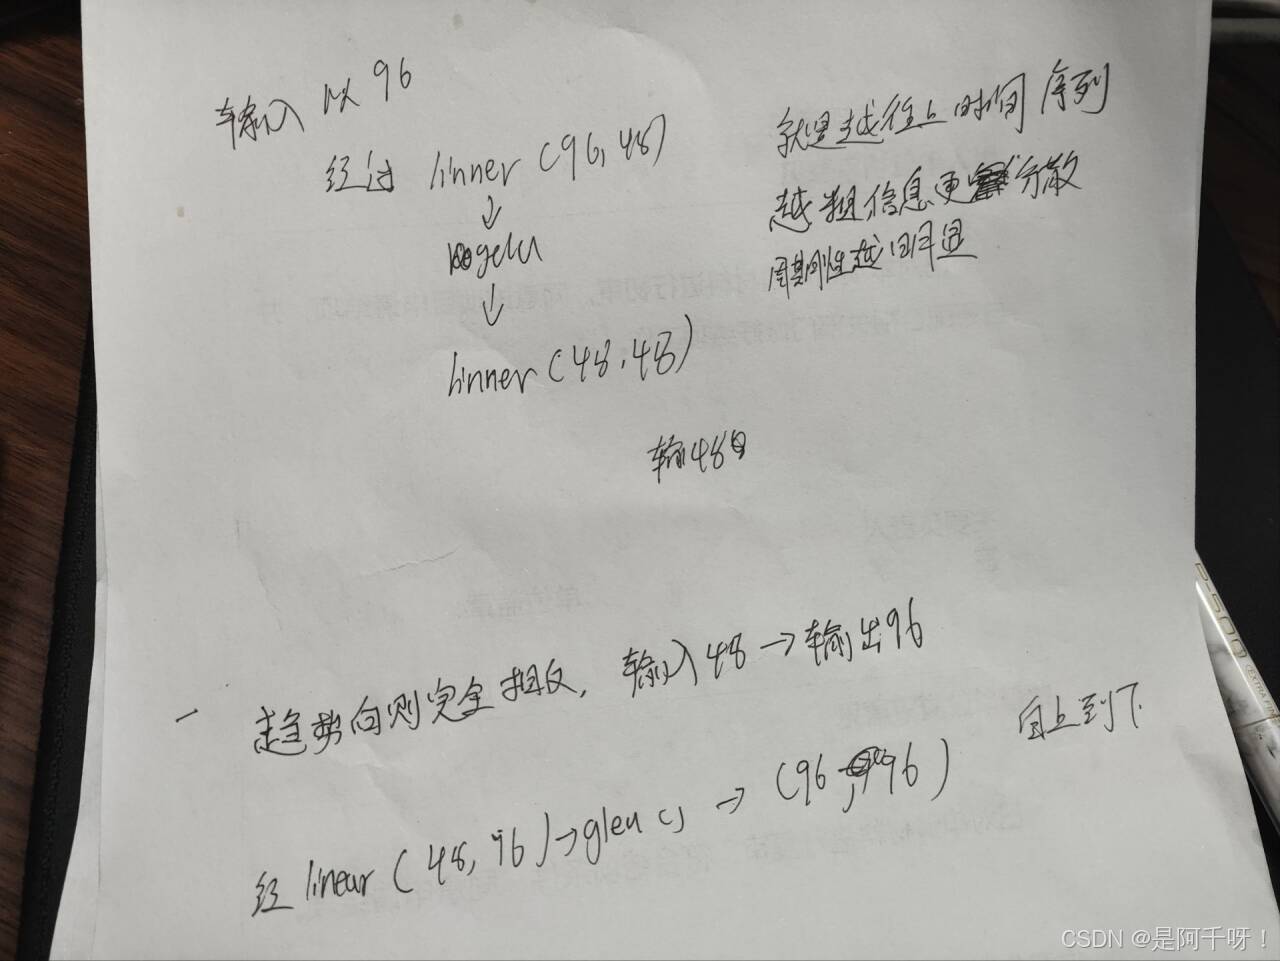 输入 以 96
经过 linner (96, 48)
↓
gelu
↓
linner (48, 48)
输 48
就是越往上时间 序列
越粗信息更分散
周期性越明显
一 趋势向则完全相反, 输入48→输出96
自上到下
经 linear (48, 96)→gleu () → (96, 96)
P-500 (EXTRA FIN
CSDN @是阿千呀！